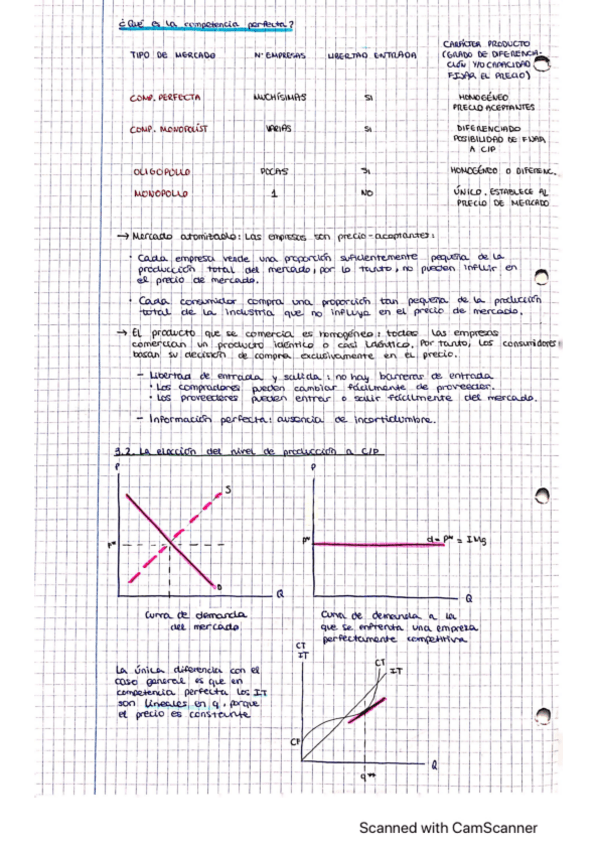 ¿Qué es la competencia perfecta?
TIPO DE MERCADO Nº EMPRESAS LIBERTAD ENTRADA CARÁCTER PRODUCTO
(GRADO DE DIFERENCIA-
CIÓN Y/O CAPACIDAD
FIJAR EL PRECIO)
COMP. PERFECTA MUCHÍSIMAS SI HOMOGÉNEO
PRECIO ACEPTANTES
COMP. MONOPOLIST VARIAS SI DIFERENCIADO
POSIBILIDAD DE FIJAR
A C/P
OLIGOPOLIO POCAS SI HOMOGÉNEO O DIFERENC.
MONOPOLIO 1 NO ÚNICO. ESTABLECE AL
PRECIO DE MERCADO
→ Mercado atomizado: Las empresas son precio-aceptantes:
· Cada empresa vende una proporción suficientemente pequeña de la
producción total del mercado, por lo tanto, no pueden influir en
el precio de mercado.
· Cada consumidor compra una proporción tan pequeña de la producción
total de la industria que no influya en el precio de mercado.
→ El producto que se comercia es homogéneo: todas las empresas
comercian un producto idéntico o casi idéntico. Por tanto, los consumidores
basan su decisión de compra exclusivamente en el precio.
- Libertad de entrada y salida: no hay barreras de entrada
· Los compradores pueden cambiar fácilmente de proveedor.
· Los proveedores pueden entrar o salir fácilmente del mercado.
- Información perfecta: ausencia de incertidumbre.
1.2. LA elección del nivel de producción a C/P
P
S
P*
D
Q
Curva de demanda
del mercado
P
P*
d = P* = IMg
Q
Curva de demanda a la
que se enfrenta una empresa
perfectamente competitiva
La única diferencia con el
caso general es que en
competencia perfecta los IT
son lineales en q, porque
el precio es constante
CT
IT
CT
IT
CF
q*
Q
Scanned with CamScanner